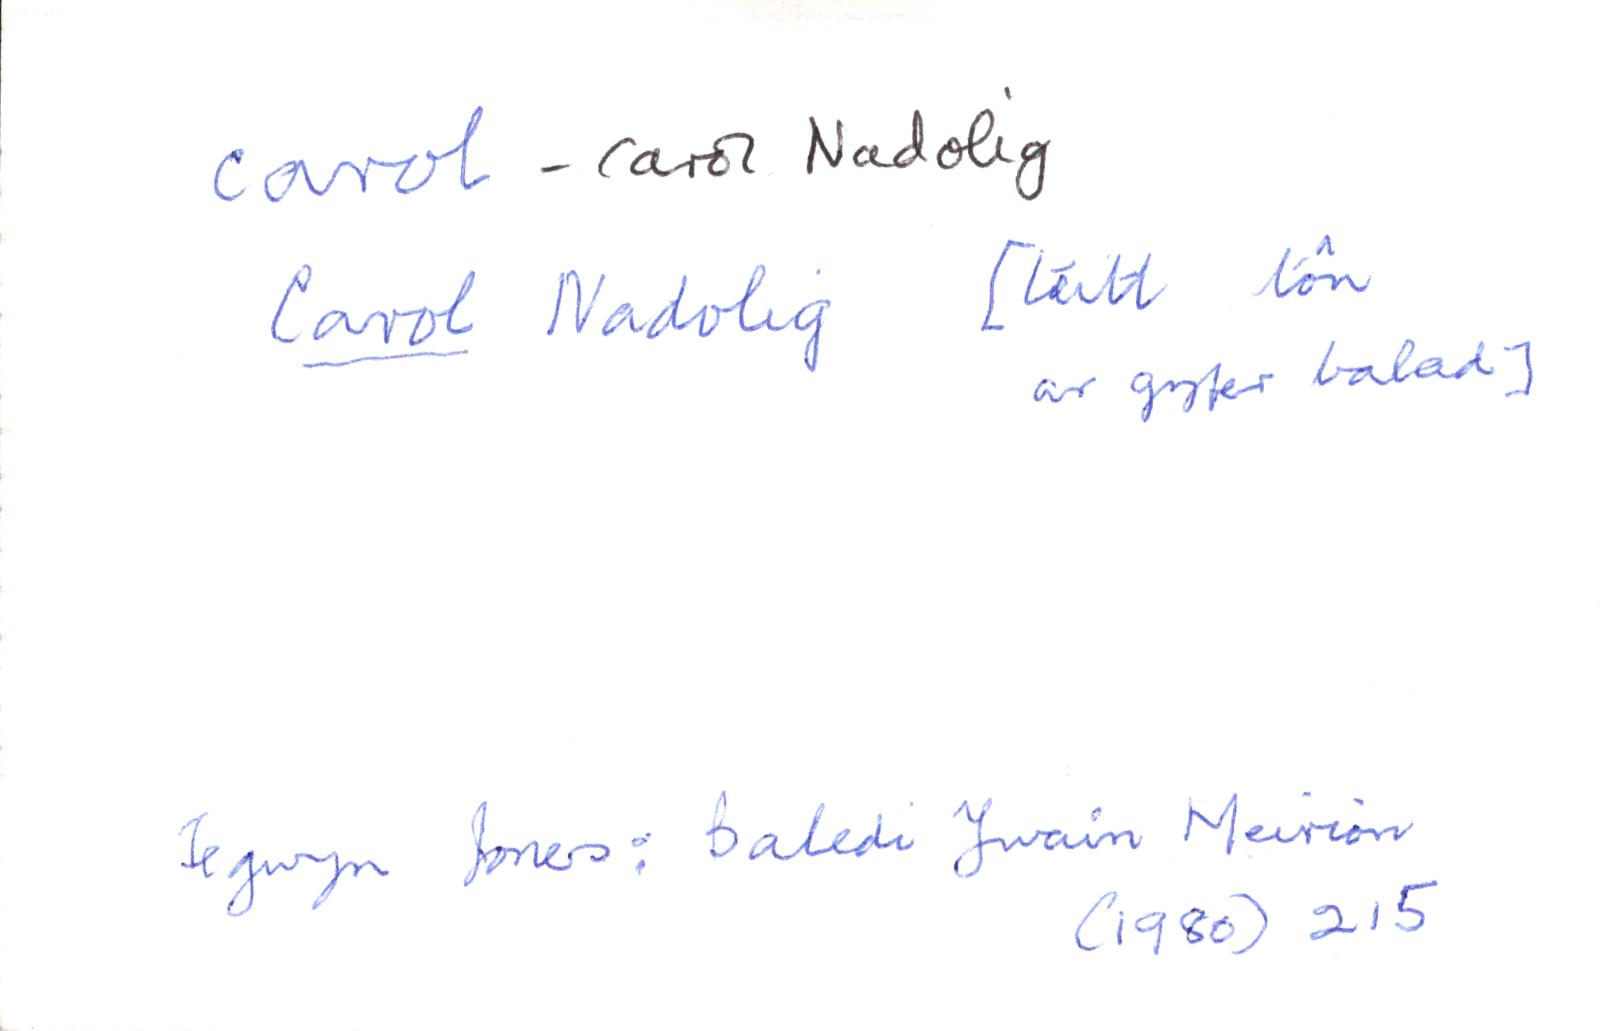 carol - carol Nadolig
Carol Nadolig [teitl tôn
ar gyfer balad]
Tegwyn Jones: Baledi Ywain Meirion
(1980) 215